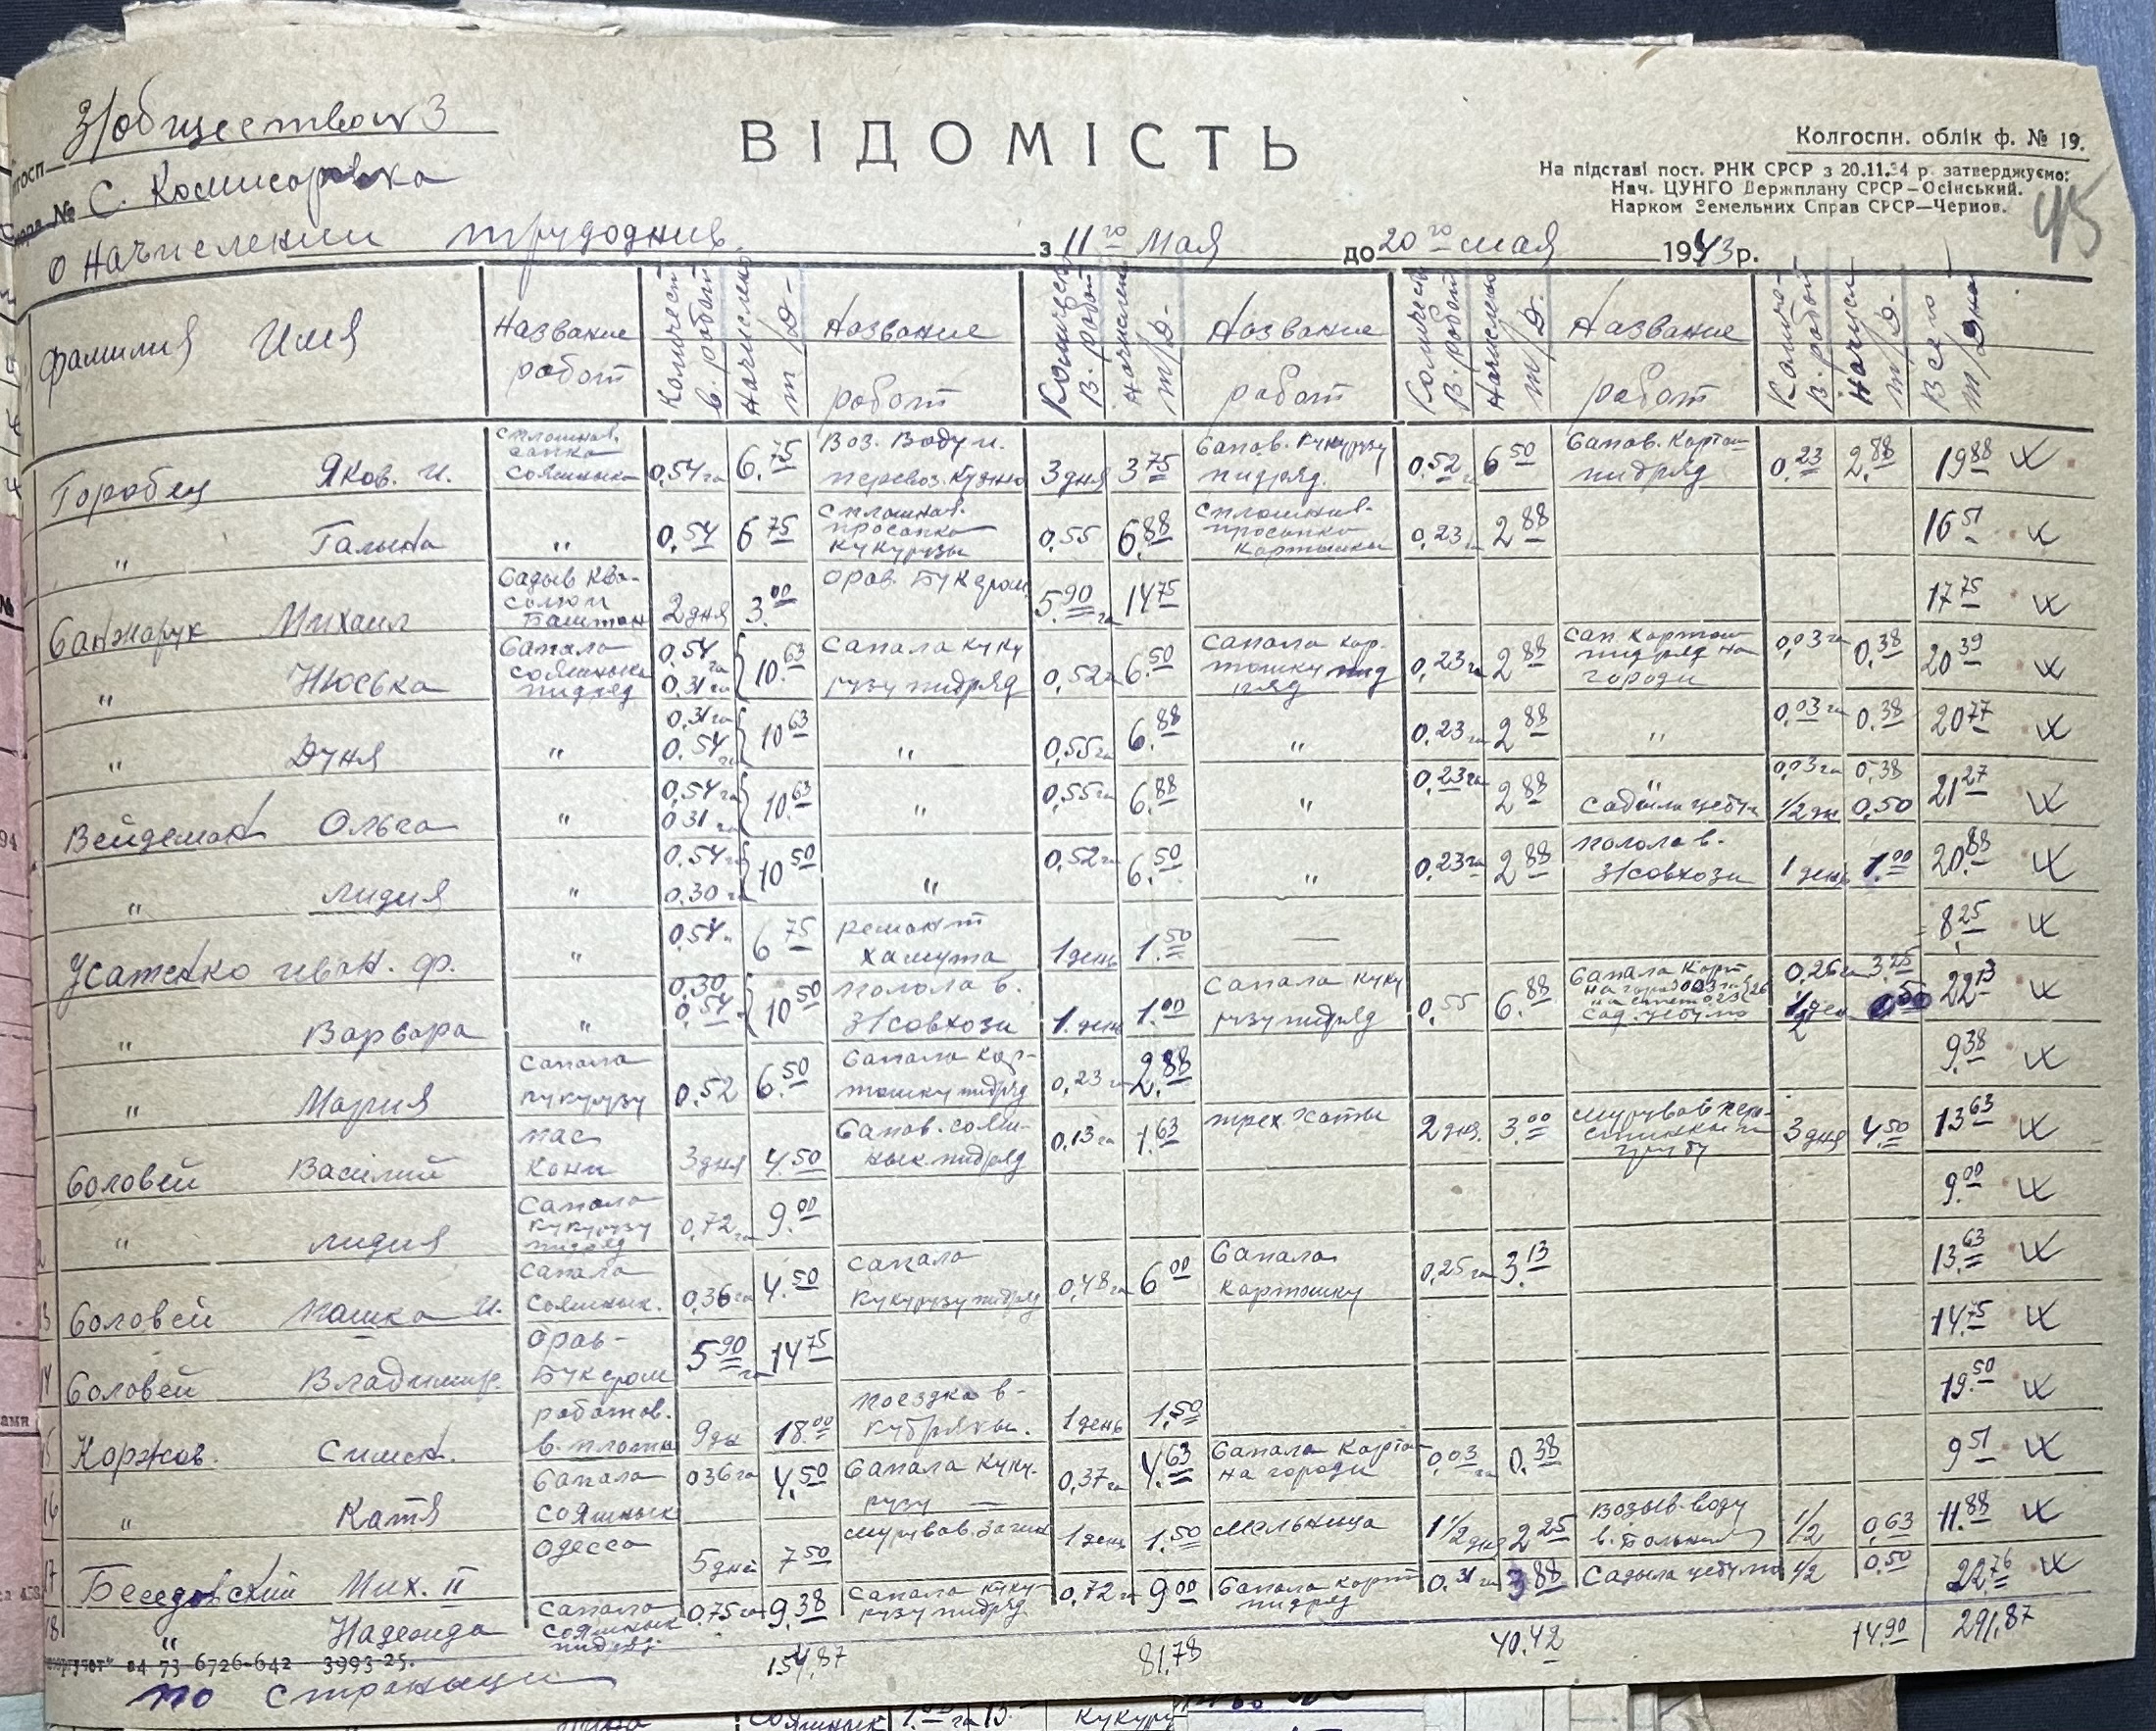 З/общество № 3
ВІДОМІСТЬ
Колгоспн. облік ф. № 19.
На підставі пост. РНК СРСР з 20.11.34 р. затверджуємо:
Нач. ЦУНГО Держплану СРСР–Осінський.
Нарком Земельних Справ СРСР—Чернов.
45
госп
№ С. Комисаровка
О начислении трудоднив. з 11го Мая до 20го мая 1943 р.
Фамилия Имя Название работ Количест в. работ Начислено т/д- Название работ Количест в. работ Начислено т/д- Название работ Количест в. работ Начислено т/д. Название работ Количе- в. работ Начисл т/д- Всего т/дна
Горобец Яков. И. сплошная сапка сояшныка 0,54 га 6.75 Воз. Воду и. перевоз. 3 дня 3 75 Сапов. Кукурузу пидряд. 0,52 6 50 Сапов. Картош пидряд 0,23 2.88 19 88
" Галына " 0,54 6 75 сплошная просапка кукурузы 0,55 6.88 сплошная просапка картошки 0,23 2 88 16 51
Санжарук Михаил Садыв ква- солю и Баштан 2 дня 3.00 Орав. Букером 5 90 га 14 75 17 75
" Нюська Сапала сояшныка пидряд 0,54 га 0,31 га 10.63 Сапала куку рузу пидряд 0,52 га 6.50 Сапала кар- тошку пид ряд 0,23 га 2 88 Сап картош пидряд на городи 0,03 га 0,38 20 39
" Дуня " 0,31 га 0.54 га 10 63 " 0,55 га 6.88 " 0,23 га 2 88 " 0,03 га 0.38 20 77
Вейдеман Ольга " 0,54 га 0,31 га 10.63 " 0,55 га 6.88 " 0,23 га 2 88 " Садыла цебулю 0,03 га 0,38 1/2 дн 0,50 21 27
" Лидия " 0.54 га 0.30 га 10 50 " 0,52 га 6.50 " 0,23 га 2 88 полола в. З/совхози 1 день 1.00 20.88
Усатенко иван. Ф. " 0.54 6 75 ремонт хамута 1 день 1.50 — 8 25
" Варвара " 0,30 0,54 10 50 полола в. З/совхози 1 день 1.00 Сапала куку рузу пидряд 0,55 6.88 Сапала Карт. сад. цебулю 0,26 га 3.25 1/2 ден 0 50 22 13
" Мария Сапала кукурузу 0,52 6.50 Сапала кар- тошку пидряд 0,23 га 2.88 9.38
Соловей Василий пас кони 3 дня 4.50 Сапов. сояш- нык пидряд 0,13 га 1 63 трех хаты 2 дня. 3.00 3 дня 4.50 13 63
" Лидия Сапала кукурузу пидряд 0,72 га 9.00 9.00
13 Соловей Пашка И. Сапала сояшнык. 0,36 га 4.50 Сапала кукурузу пидряд 0,48 га 6 00 Сапала картошку 0,25 га 3.13 13.63
14 Соловей Владимир. Орав- Букером 5 90 га 14 75 14.75
15 Коржов. Симен. работов. в. плотн 9 дн 18.00 поездка в- 1 день 1.50 19.50
16 " Катя Сапала сояшнык 0 36 га 4.50 Сапала куку- рузу — 0,37 га 4.63 Сапала Картош на городи 0,03 га 0.38 9 51
17 Беседовский Мих. II Одесса 5 дней 7 50 мурував. 1 день 1.50 мельныца 1 1/2 дня 2 25 возыв. воду в. Больниц 1/2 0,63 11.88
18 " Надежда Сапала сояшнык пидряд 0,75 га 9.38 Сапала куку- рузу пидряд 0,72 га 9 00 Сапала карт пидряд 0.31 га 3 88 Садыла цебулю 1/2 0.50 22 76
04 73 6726-642 3993-25.
по странице 154,87 81.78 40.42 14.90 291,87